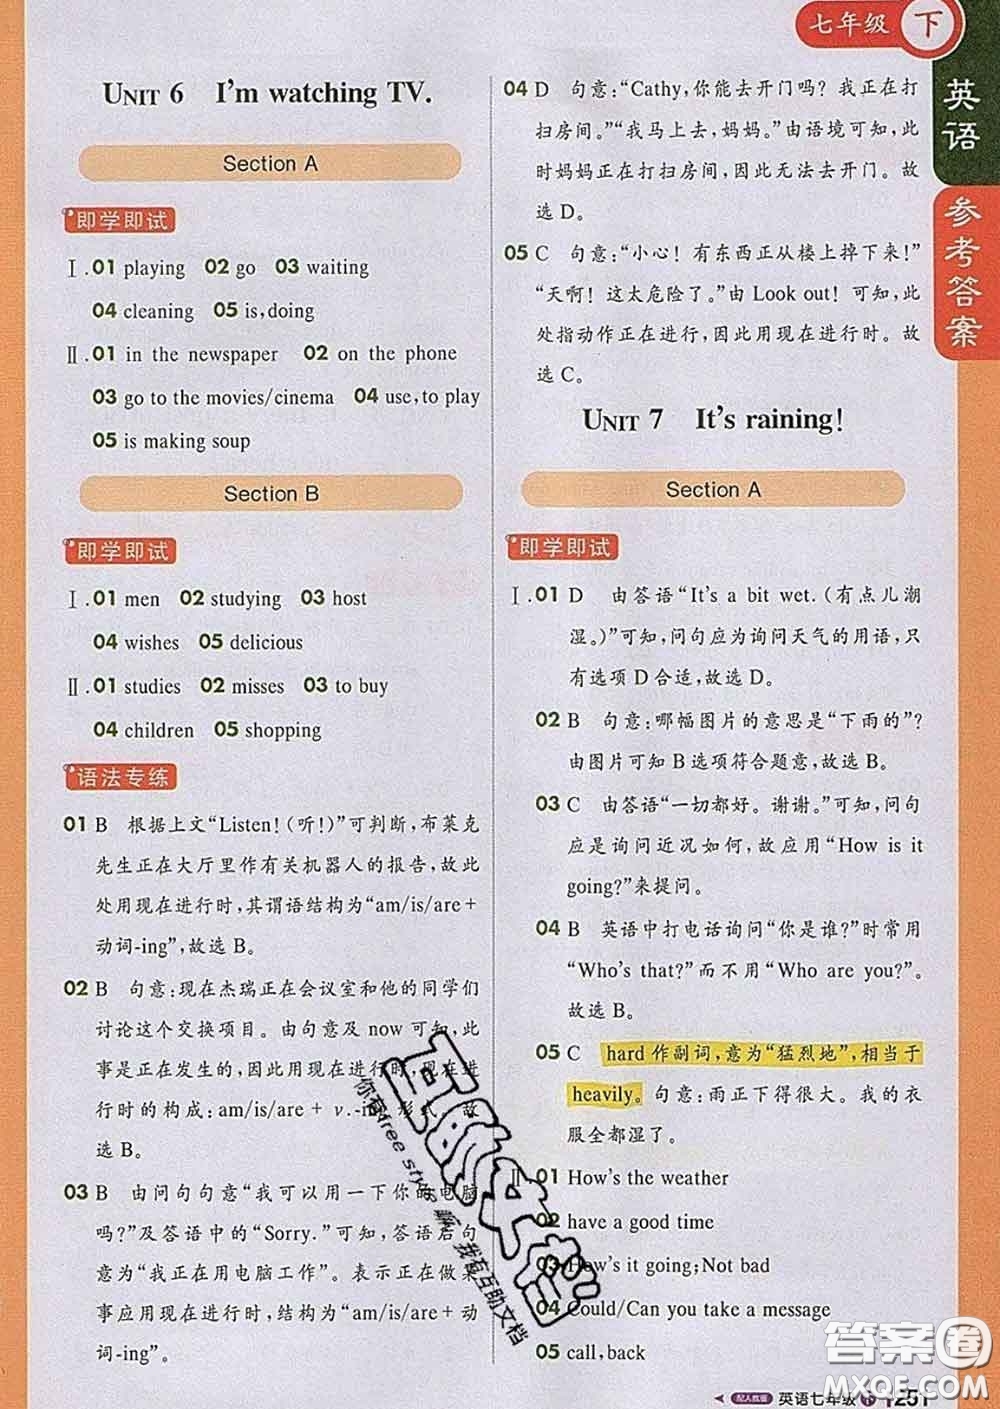 七年级 下
英语
参考答案
UNIT 6 I'm watching TV.
Section A
即学即试
Ⅰ.01 playing 02 go 03 waiting
04 cleaning 05 is,doing
Ⅱ.01 in the newspaper 02 on the phone
03 go to the movies/cinema 04 use,to play
05 is making soup
Section B
即学即试
Ⅰ.01 men 02 studying 03 host
04 wishes 05 delicious
Ⅱ.01 studies 02 misses 03 to buy
04 children 05 shopping
语法专练
01 B 根据上文“Listen!(听!)”可判断,布莱克
先生正在大厅里作有关机器人的报告,故此
处用现在进行时,其谓语结构为“am/is/are+
动词-ing”,故选 B。
02 B 句意:现在杰瑞正在会议室和他的同学们
讨论这个交换项目。由句意及 now 可知,事
情是正在发生的,因此用现在进行时,现在进
行时的构成:am/is/are + v.-ing 形式。故
选 B。
03 B 由问句句意“我可以用一下你的电脑
吗?”及答语中的“Sorry.”可知,答语后句
意为“我正在用电脑工作”。表示正在做某
事应用现在进行时,结构为“am/is/are+动
词-ing”。
04 D 句意:“Cathy,你能去开门吗?我正在打
扫房间。”“我马上去,妈妈。”由语境可知,此
时妈妈正在打扫房间,因此无法去开门。故
选 D。
05 C 句意:“小心!有东西正从楼上掉下来!”
“天啊!这太危险了。”由 Look out! 可知,此
处指动作正在进行,因此用现在进行时。故
选 C。
UNIT 7 It's raining!
Section A
即学即试
Ⅰ.01 D 由答语“It's a bit wet.(有点儿潮
湿。)”可知,问句应为询问天气的用语,只
有选项 D 合适,故选 D。
02 B 句意:哪幅图片的意思是“下雨的”?
由图片可知 B 选项符合题意,故选 B。
03 C 由答语“一切都好。谢谢。”可知,问句
应是询问近况如何,故应用“How is it
going?”来提问。
04 B 英语中打电话询问“你是谁?”时常用
“Who's that?”而不用“Who are you?”。
故选 B。
05 C hard 作副词,意为“猛烈地”,相当于
heavily。句意:雨正下得很大。我的衣
服全都湿了。
Ⅱ.01 How's the weather
02 have a good time
03 How's it going;Not bad
04 Could/Can you take a message
05 call,back
配人教版 英语七年级 下 251
你有free style 啊 我有互助文档
答案卷
MXQE.COM